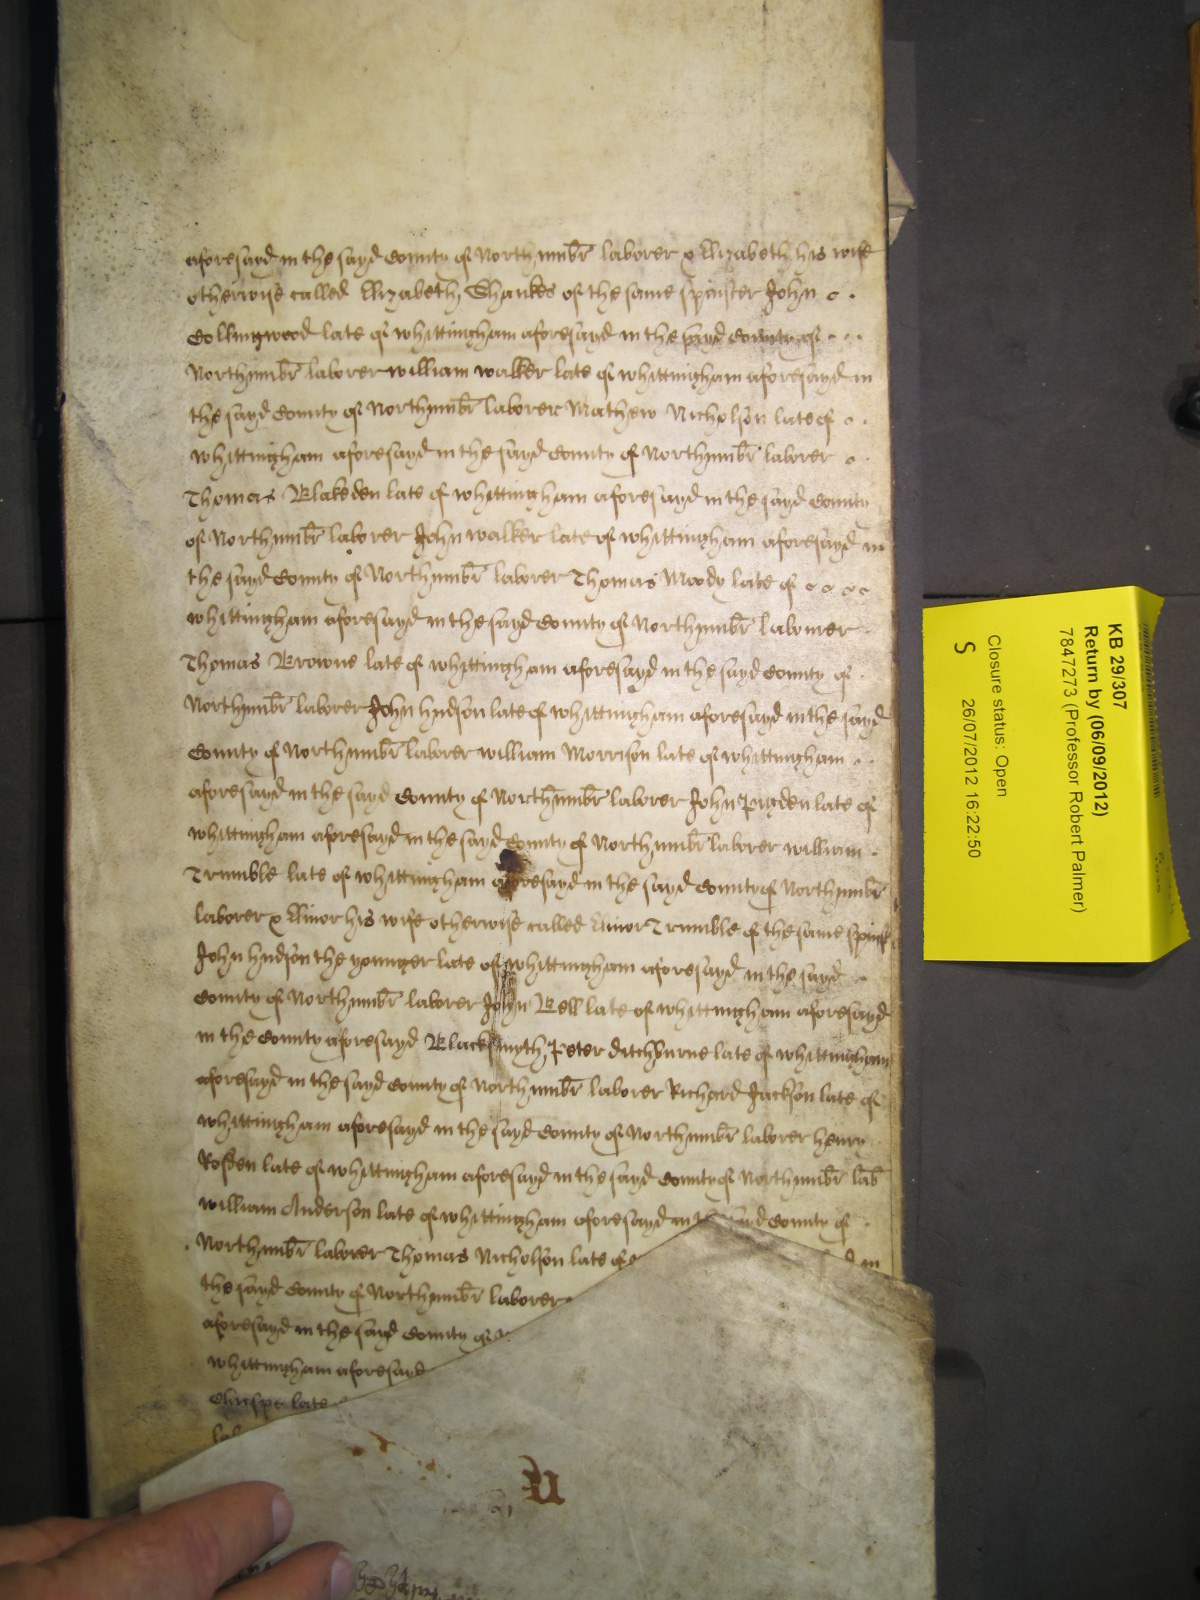 aforesayd in the sayd County of Northumbr̃ laborer & Elizabeth his wife
otherwise called Elizabeth Shanks of the same spinster John
Collingwood late of whittingham aforesayd in the sayd County of
Northumbr̃ laborer william walker late of whittingham aforesayd in
the sayd County of Northumbr̃ laborer Mathew Nicholson late of
whittingham aforesayd in the sayd County of Northumbr̃ laborer
Thomas Blakeden late of whittingham aforesayd in the sayd County
of Northumbr̃ laborer John walker late of whittingham aforesayd in
the sayd County of Northumbr̃ laborer Thomas Moody late of
whittingham aforesayd in the sayd County of Northumbr̃ labourer
Thomas Browne late of whittingham aforesayd in the sayd County of
Northumbr̃ laborer John hudson late of whittingham aforesayd in the sayd
County of Northumbr̃ laborer william Morrison late of whittingham
aforesayd in the sayd County of Northumbr̃ laborer John Pigden late of
whittingham aforesayd in the sayd County of Northumbr̃ laborer william
Trumble late of whittingham aforesayd in the sayd County of Northumbr̃
laborer & Elinor his wife otherwise called Elinor Trumble of the same
John hudson the younger late of whittingham aforesayd in the sayd
County of Northumbr̃ laborer John Bell late of whittingham aforesayd
in the County aforesayd Blacksmyth Peter ditchburne late of whittingham
aforesayd in the sayd County of Northumbr̃ laborer Richard Jackson late of
whittingham aforesayd in the sayd County of Northumbr̃ laborer henry
late of whittingham aforesayd in the sayd County of Northumbr̃ lab̃
william Anderson late of whittingham aforesayd in County of
Northumbr̃ laborer Thomas Nicholson late of in
the sayd County of Northumbr̃ laborer
aforesayd in the sayd County of
whittingham aforesayd
late
KB 29/307
Return by (06/09/2012)
7847273 (Professor Robert Palmer)
Closure status: Open
S 26/07/2012 16:22:50